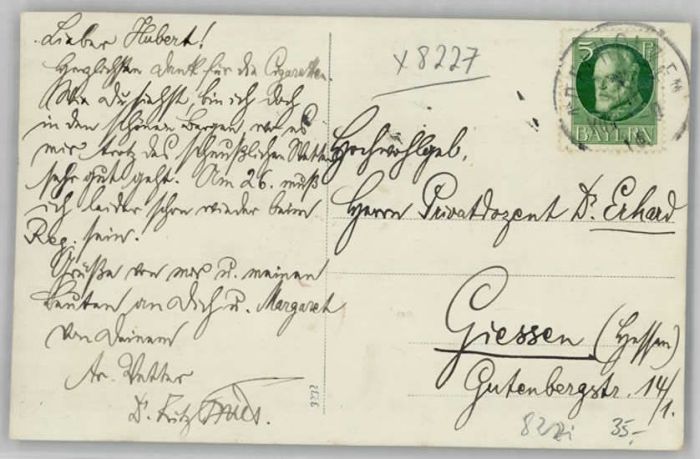 Lieber Hubert!
Herzlichsten Dank für die Cigaretten.
Wie Du siehst, bin ich doch
in den schönen Bergen, wo es
mir trotz des scheußlichen Wetters
sehr gut geht. Am 26. muß
ich leider schon wieder beim
Reg. sein.
Grüße von mir u. meinen
Leuten an Dich u. Margaret
von Deinem
Vetter
Dr. Fritz
x 8227
5 Pf
BAYERN
Hochwohlgeb.
Herrn Privatdozent Dr. Erhard
Giessen (Hessen)
Gutenbergstr. 14/1.
8227
35.-